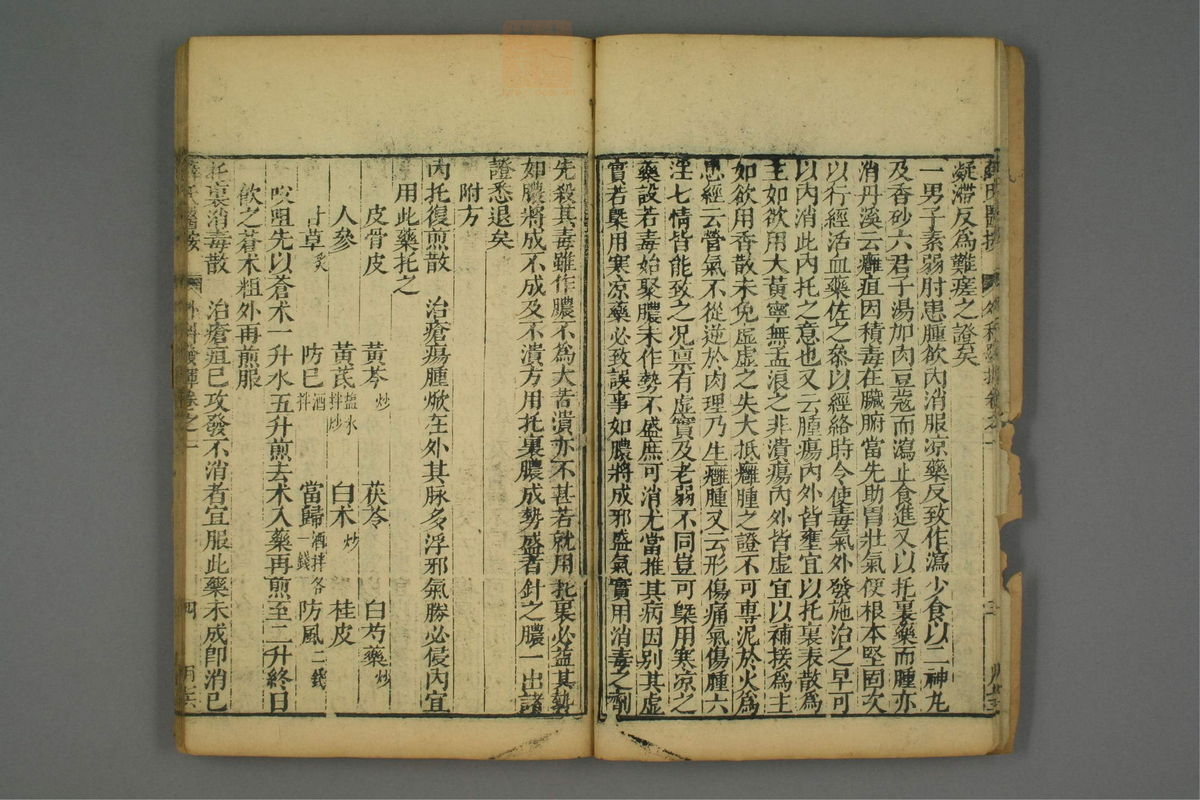 凝滯反爲難瘥之證矣
一男子素弱肘患腫欲內消服凉藥反致作瀉少食以二神丸
及香砂六君子湯加肉豆蔻而瀉止食進又以托裏藥而腫亦
消丹溪云癰疽因積毒在臟腑當先助胃壯氣使根本堅固次
以行經活血藥佐之叅以經絡時令使毒氣外發施治之早可
以內消此內托之意也又云腫瘍內外皆壅宜以托裏表散爲
主如欲用大黃寧無孟浪之非潰瘍內外皆虛宜以補接爲主
如欲用香散未免虛虛之失大抵癰腫之證不可專泥於火爲
患經云營氣不從逆於肉理乃生癰腫又云形傷痛氣傷腫六
淫七情皆能致之况禀有虛實及老弱不同豈可槩用寒凉之
藥設若毒始聚膿未作勢不盛庶可消尤當推其病因別其虛
實若槩用寒凉藥必致誤事如膿將成邪盛氣實用消毒之劑
先殺其毒雖作膿不爲大苦潰亦不甚若就用托裏必益其勢
如膿將成不成及不潰方用托裏膿成勢盛者針之膿一出諸
證悉退矣
附方
內托復煎散 治瘡瘍腫焮在外其脉多浮邪氣勝必侵內宜
用此藥托之
皮骨皮 黃芩炒 茯苓 白芍藥炒
人參 黃芪鹽水拌炒 白朮炒 桂皮
甘草炙 防巳酒拌 當歸酒拌各一錢 防風二錢
㕮咀先以蒼朮一升水五升煎去朮入藥再煎至二升終日
飲之蒼朮粗外再煎服
托裏消毒散 治瘡疽巳攻發不消者宜服此藥未成卽消巳
薛氏醫按 外科發揮卷之二 四